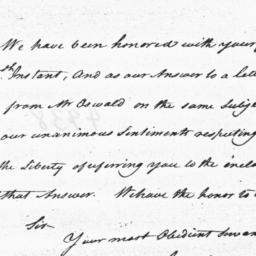 We have been honored with your
th Instant, And as our Answer to a le
from Mr Oswald on the same Subje
our unanimous Sentiments respecting
the Liberty of referring you to the inclo
that Answer. We have the honor to
Sir
Your most Obedient